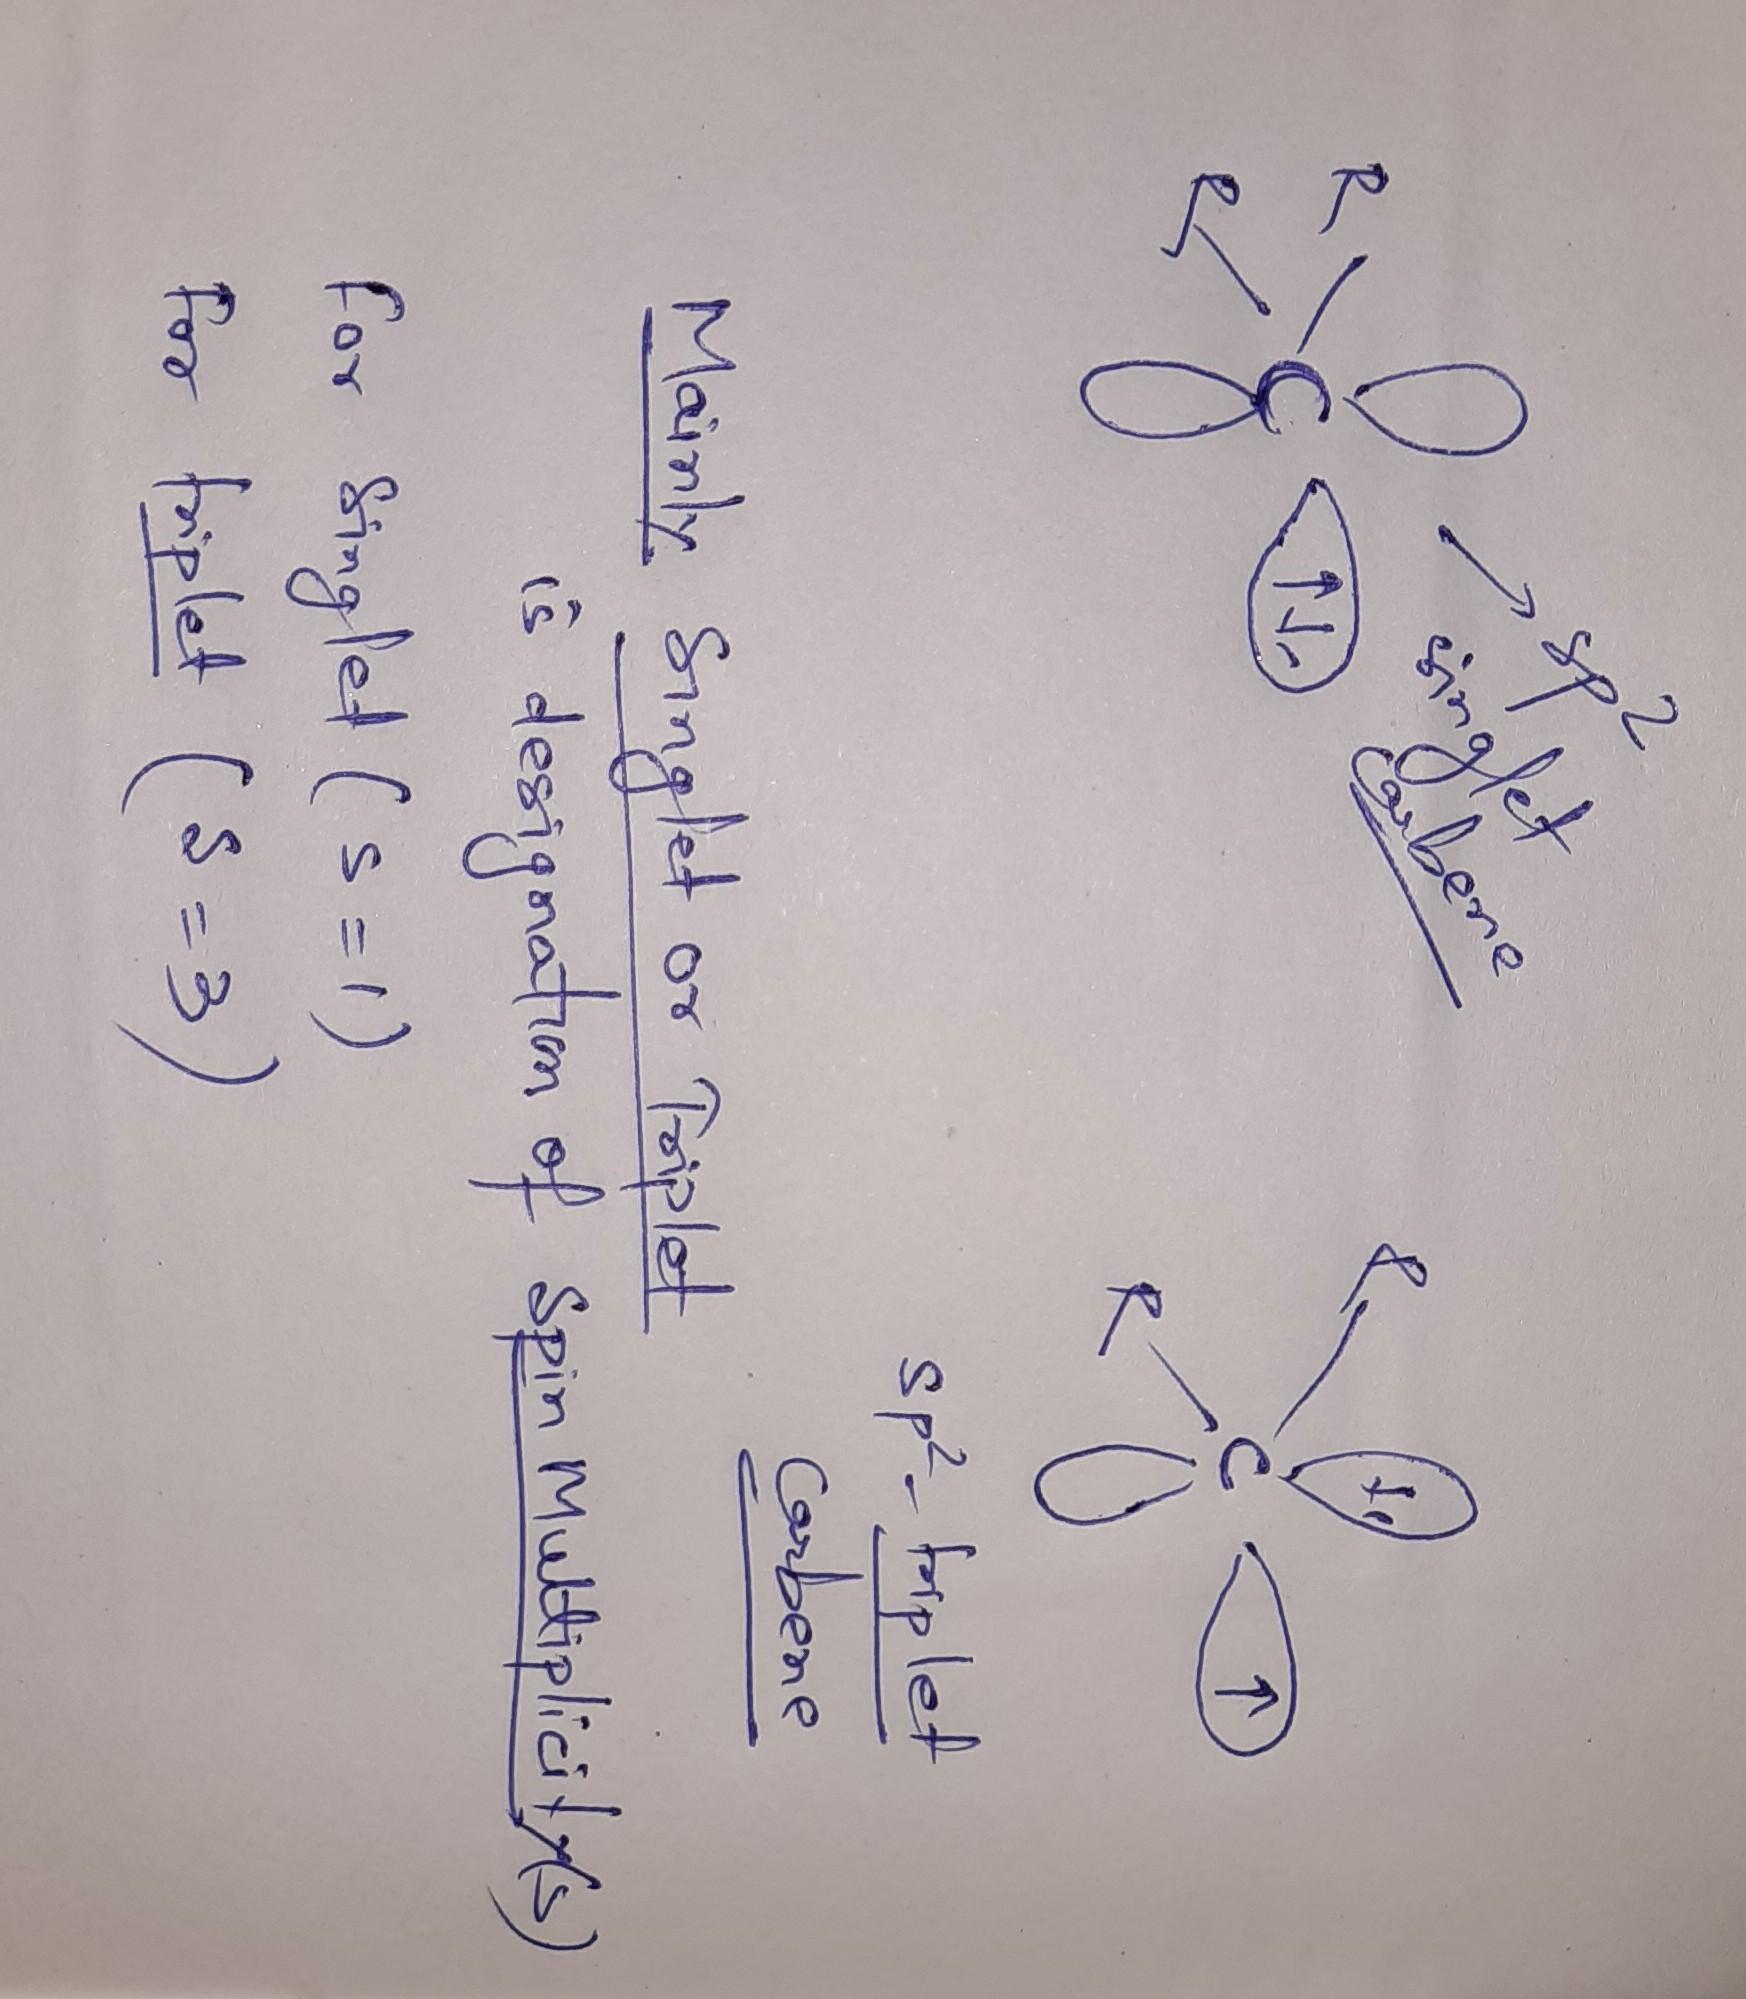 R
R
C
↑↓
→ sp²
singlet
Carbene
R
R
C
↓
↑
sp² - triplet
Carbene
Mainly Singlet or Triplet
is designation of Spin Multiplicity(s)
For Singlet (s = 1)
for triplet (s = 3)